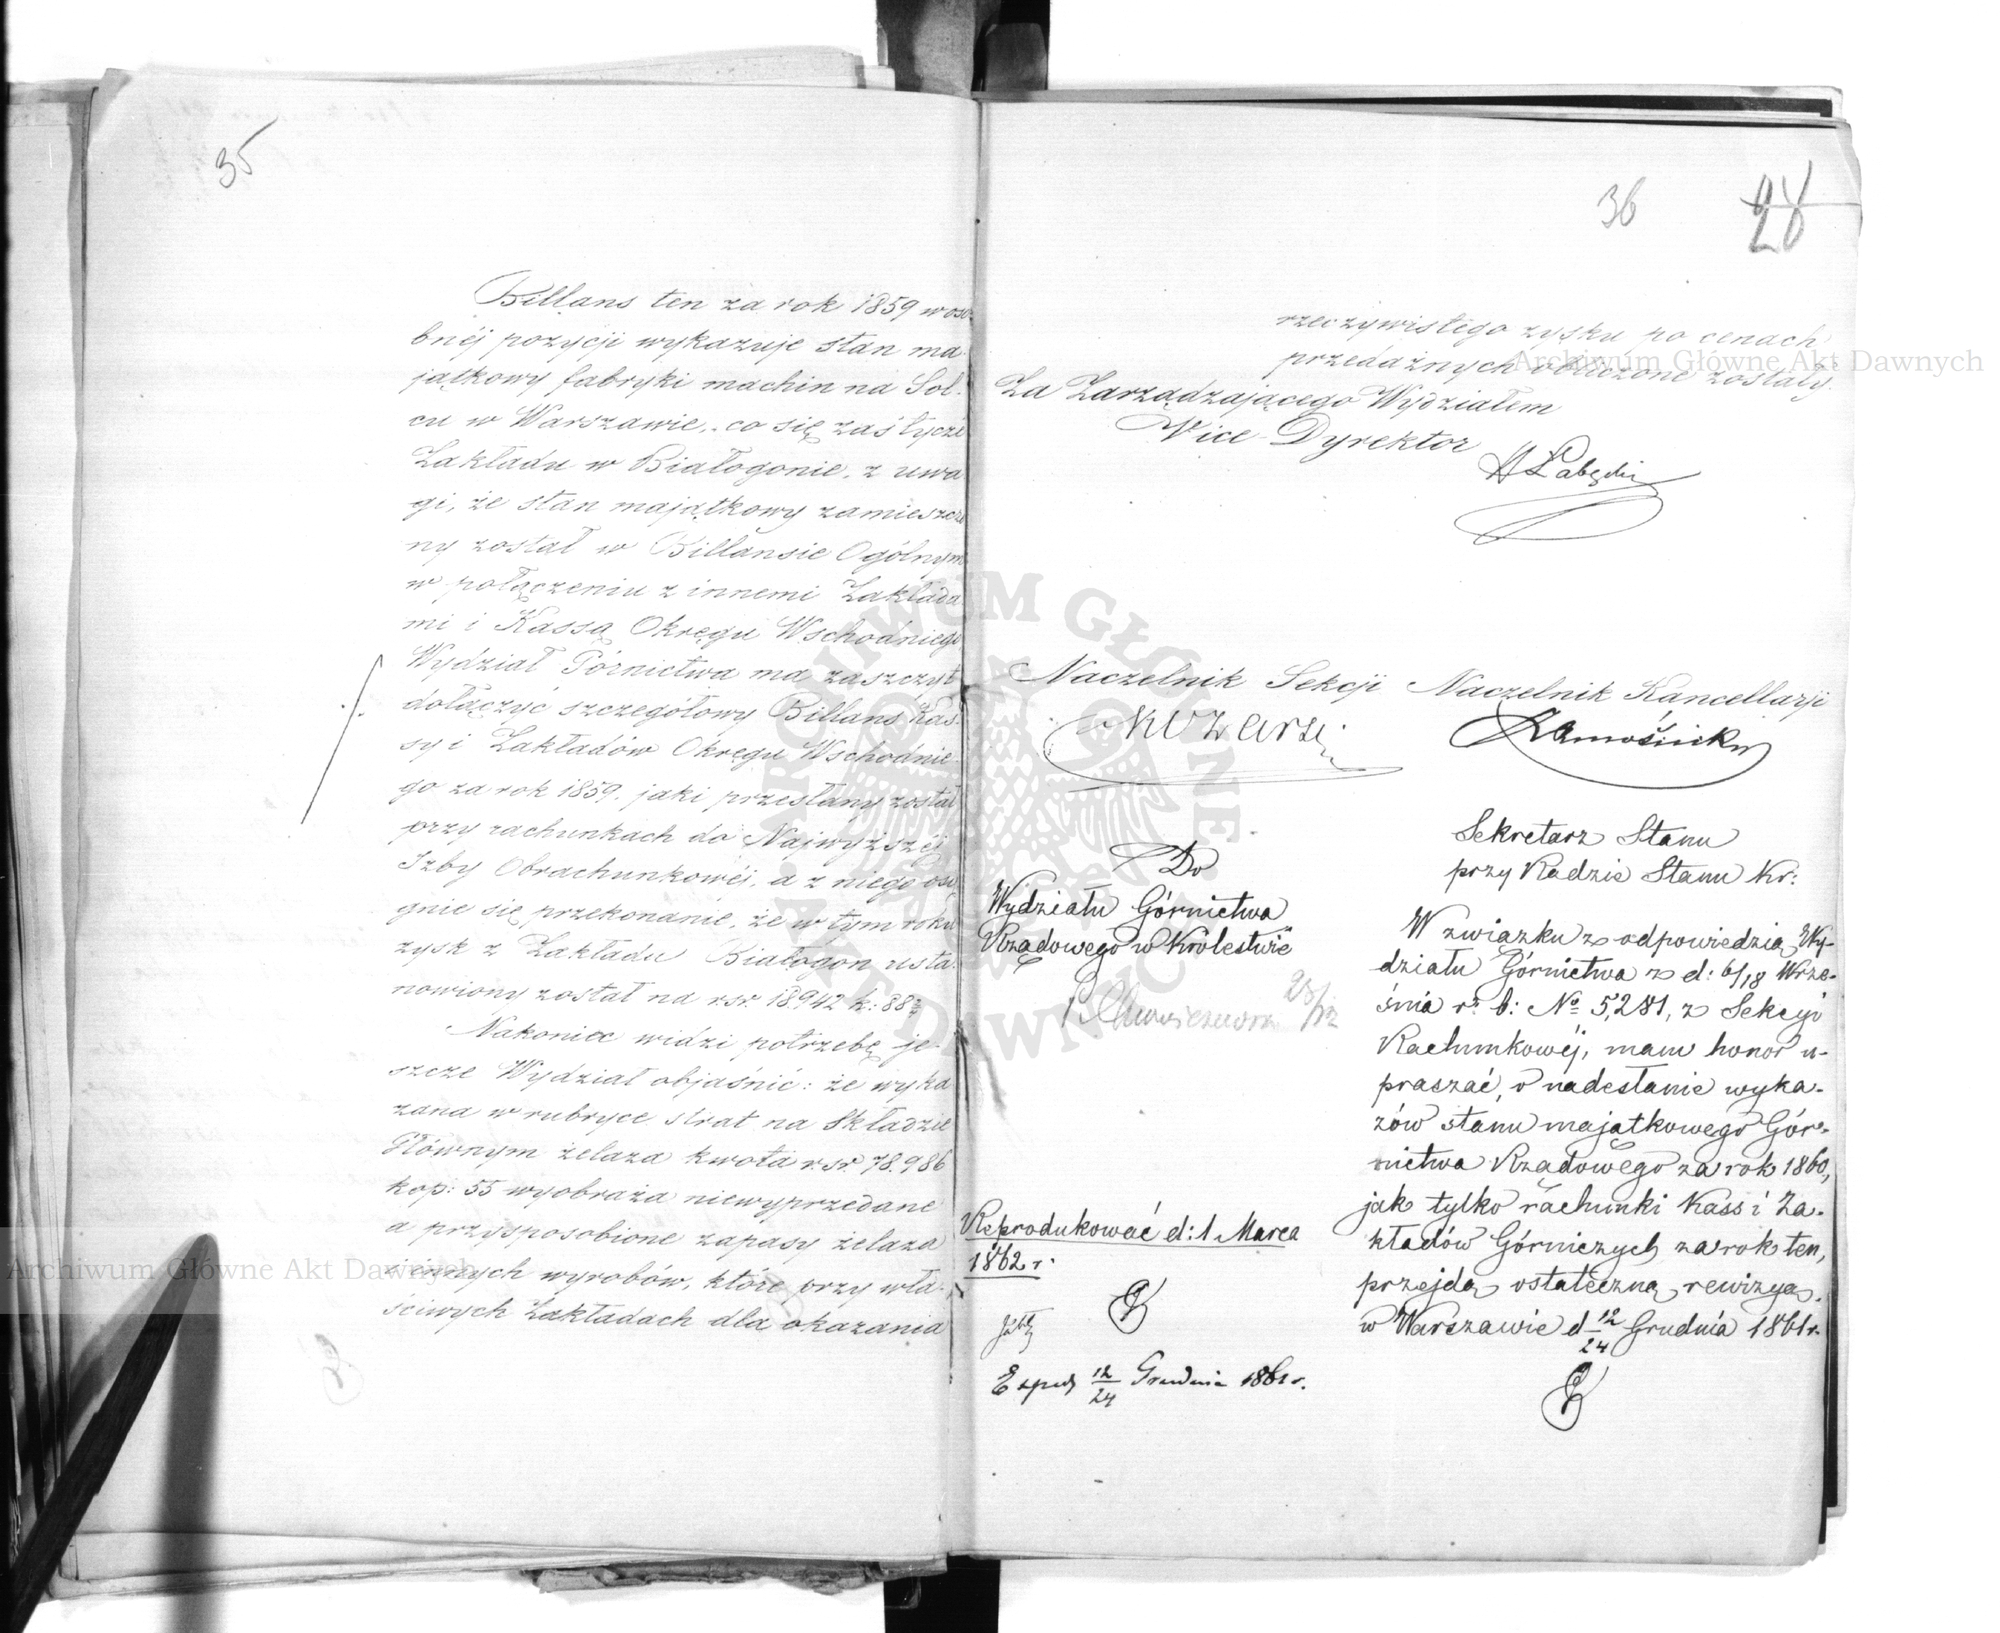 35
Billans ten za rok 1859 w oso-
bnéj pozycji wykazuje stan ma-
jątkowy fabryki machin na Sol-
cu w Warszawie, co się zaś tycze
Zakładu w Białogonie, z uwa
gi, że stan majątkowy zamieszczo
ny został w Billansie Ogólnym
w połączeniu z innemi Zakłada
mi i Kassą Okręgu Wschodniego
Wydział Górnictwa ma zaszczyt
dołączyć szczegółowy Billans Kas-
sy i Zakładów Okręgu Wschodnie-
go za rok 1859. jaki przesłany został
przy rachunkach do Najwyższéj
Izby Obrachunkowéj, a z niego osią
gnie się przekonanie, że w tym roku
zysk z Zakładu Białogon usta-
nowiony został na rsr. 18942 k: 88½
Nakoniec widzi potrzebę je-
szcze Wydział objaśnić: że wyka
zana w rubryce strat na Składzie
Głównym żelaza kwota rsr. 78.986
kop: 55 wyobraża niewyprzedane
a przysposobione zapasy żelaza
i innych wyrobów, które przy wła-
ściwych Zakładach dla okazania
36
28
rzeczywistego zysku po cenach
przedażnych obliczone zostały.
Za Zarządzającego Wydziałem
Vice-Dyrektor
H Łabęcki
Naczelnik Sekcji Naczelnik Kancellarji
Zamośnikow
Do
Wydziału Górnictwa
Rządowego w Królestwie
23/12
Reprodukować d: 1 Marca
1862 r.
Exped 12/24 Grudnia 1861 r.
Sekretarz Stanu
przy Radzie Stanu Kr:
W związku z odpowiedzią Wy-
działu Górnictwa z d: 6/18 Wrze-
śnia r. b: No 5,281, z Sekcyi
Rachunkowéj, mam honor u-
praszać, o nadesłanie wyka-
zów stanu majątkowego Gór-
nictwa Rządowego za rok 1860,
jak tylko rachunki Kass i Za-
kładów Górniczych za rok ten,
przejdą ostateczną rewizyą.
w Warszawie d 12/24 Grudnia 1861 r.
Archiwum Główne Akt Dawnych
Archiwum Główne Akt Dawnych
ARCHIWUM GŁÓWNE AKT DAWNYCH